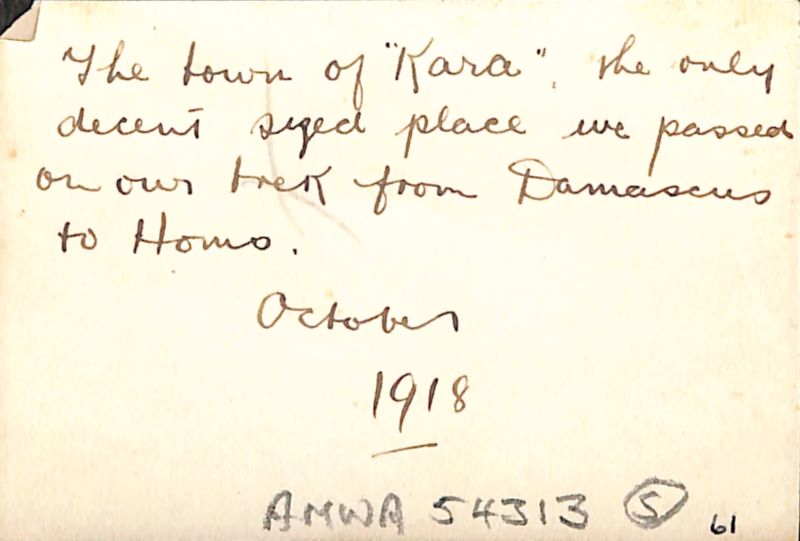 The town of "Kara", the only
decent sized place we passed
on our trek from Damascus
to Homs.
October
1918
AMWA 54313 S 61